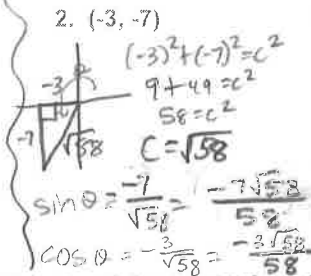 2. (-3, -7)
(-3)²+(-7)²=c²
9+49=c²
58=c²
C=√58
-3
-7
√58
sinθ = -7/√58 = -7√58/58
cosθ = -3/√58 = -3√58/58